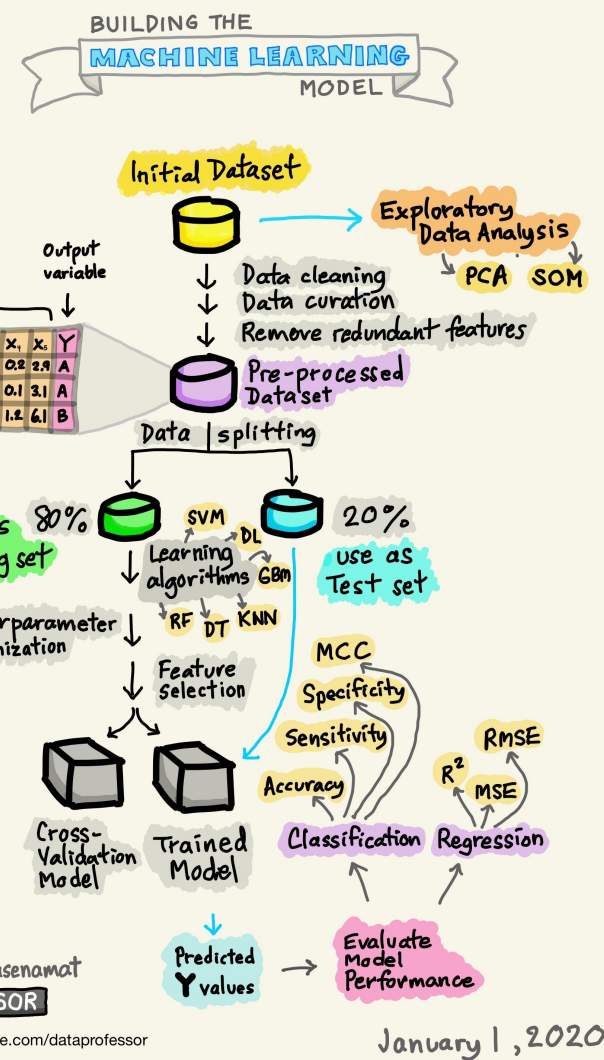 BUILDING THE
MACHINE LEARNING
MODEL
Initial Dataset
Exploratory
Data Analysis
PCA SOM
Output
variable
Data cleaning
Data curation
Remove redundant features
X₄ X₅ Y
0.2 2.9 A
0.1 3.1 A
1.2 6.1 B
Pre-processed
Dataset
Data splitting
80%
g set
SVM
DL
Learning
algorithms
GBM
RF DT KNN
20%
use as
Test set
rparameter
ization
Feature
selection
MCC
Specificity
Sensitivity
Accuracy
RMSE
R²
MSE
Classification Regression
Cross-
Validation
Model
Trained
Model
Predicted
Y values
Evaluate
Model
Performance
senamat
SOR
e.com/dataprofessor
January 1, 2020